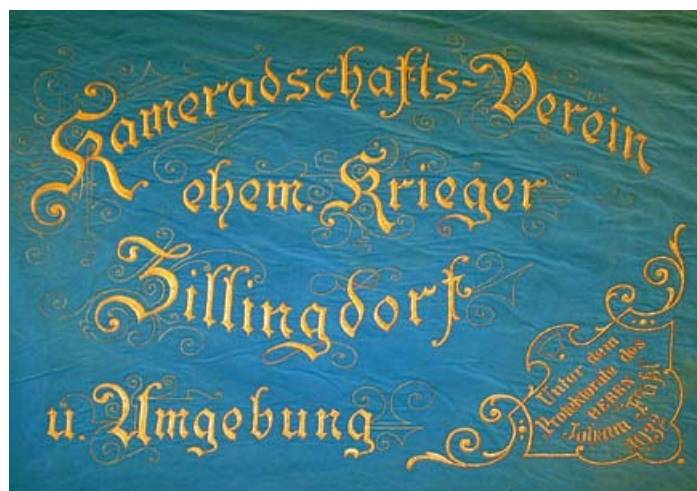 Kameradschafts-Verein
ehem. Krieger
Zillingdorf
u. Umgebung
Unter dem
Protektorate des
HERRN
Johann
1932